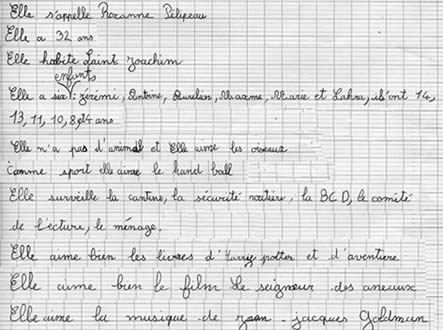 Elle s'appelle Rozanne Pélipeau
Elle a 32 ans
Elle habite Saint Joachim
enfants
Elle a six : jérémi, Antoine, Aurélien, Maxime, Marie et Lahra, ils ont 14,
13, 11, 10, 8, et 4 ans
Elle n'a pas d'animal et Elle aime les oiseaux
Comme sport elle aime le hand ball
Elle surveille la cantine, la sécurité routière, la BCD, le comité
de lécture, le ménage.
Elle aime bien les livres d'Harry potter et d'aventure
Elle aime bien le film Le seigneur des aneuux
Elle aime la musique de jean-jacques Goldman